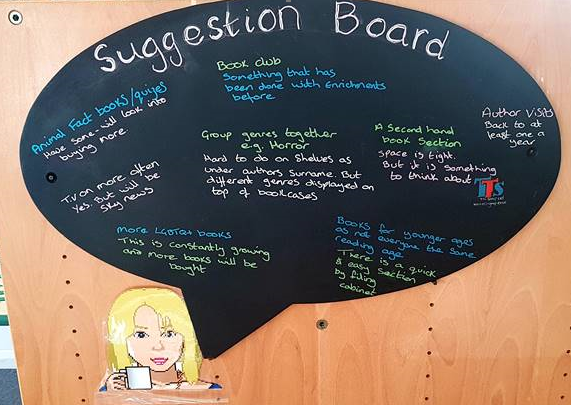 Suggestion Board
Book club
Something that has
been done with Enrichments
before
Animal Fact books/quizes
Have some - will look into
buying more
Group genres together
e.g. Horror
Hard to do on Shelves as
under authors Surname. But
different genres displayed on
top of bookcases
A Second hand
book Section
Space is tight.
But it is something
to think about
Author Visits
Back to at
least one a
year
T.V on more often
Yes. But will be
Sky news
TTS
More LGBTQ+ books
This is constantly growing
and more books will be
bought
Books for younger ages
as not everyone the same
reading age
There is a quick
& easy Section
by filing
cabinet